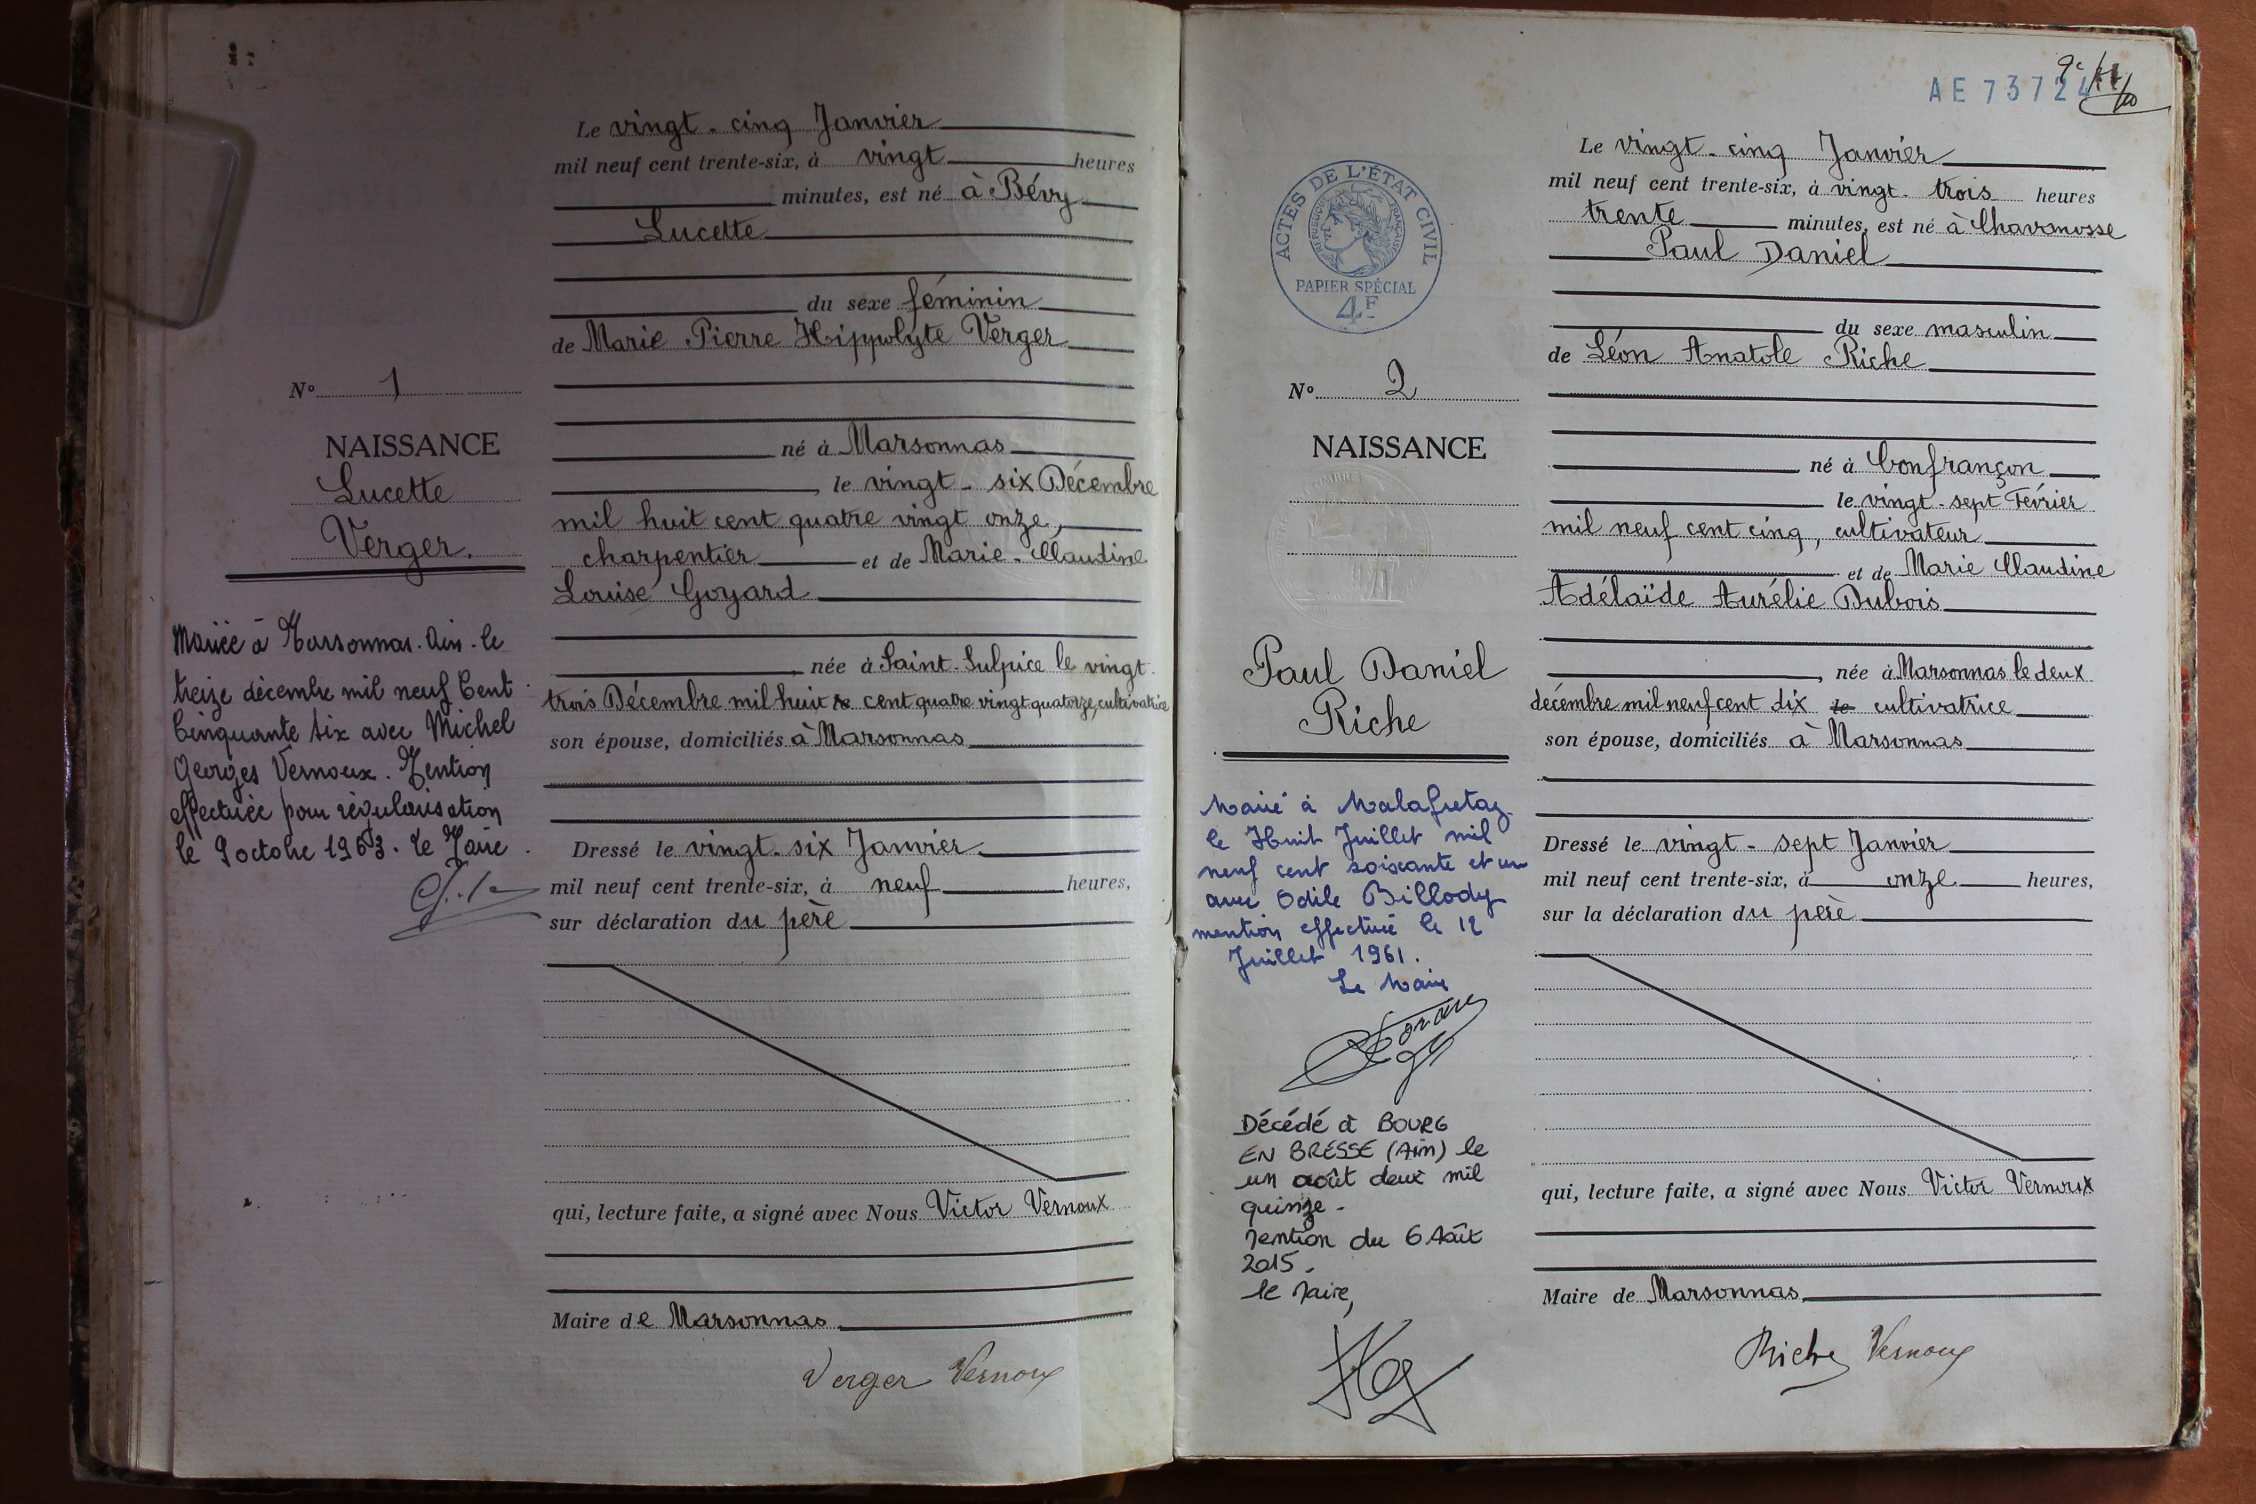 Le vingt-cinq Janvier
mil neuf cent trente-six, à vingt heures
minutes, est né à Bévy
Lucette
du sexe féminin
de Marie Pierre Hippolyte Verger
N° 1
NAISSANCE
Lucette
Verger.
né à Marsonnas
, le vingt-six Décembre
mil huit cent quatre vingt onze,
charpentier et de Marie-Claudine
Louise Goyard
, née à Saint-Sulpice le vingt
trois Décembre mil huit cent quatre vingt quatorze, cultivatrice
son épouse, domiciliés à Marsonnas
Mariée à Marsonnas. Ain. le
treize décembre mil neuf Cent
Cinquante six avec Michel
Georges Vernoux. Mention
effectuée pour régularisation
le 9 octobre 1963. Le Maire
Dressé le vingt-six Janvier
mil neuf cent trente-six, à neuf heures,
sur déclaration du père
qui, lecture faite, a signé avec Nous Victor Vernoux
Maire de Marsonnas
Verger Vernoux
AE 73724
ACTES DE L'ÉTAT CIVIL
RÉPUBLIQUE FRANÇAISE
PAPIER SPÉCIAL
4F
Le vingt-cinq Janvier
mil neuf cent trente-six, à vingt-trois heures
trente minutes, est né à Chavannosse
Paul Daniel
du sexe masculin
de Léon Anatole Riche
N° 2
NAISSANCE
né à Confrançon
le vingt-sept Février
mil neuf cent cinq, cultivateur
et de Marie Claudine
Adélaïde Aurélie Dubois
, née à Marsonnas le deux
décembre mil neuf cent dix le cultivatrice
son épouse, domiciliés à Marsonnas
Paul Daniel
Riche
Marié à Malafretaz
le Huit Juillet mil
neuf cent soixante et un
avec Odile Billody
mention effectuée le 12
Juillet 1961.
Le Maire
Décédé à BOURG
EN BRESSE (Ain) le
un août deux mil
quinze -
Mention du 6 Août
2015.
le Maire,
Dressé le vingt-sept Janvier
mil neuf cent trente-six, à onze heures,
sur la déclaration du père
qui, lecture faite, a signé avec Nous Victor Vernoux
Maire de Marsonnas
Riche Vernoux